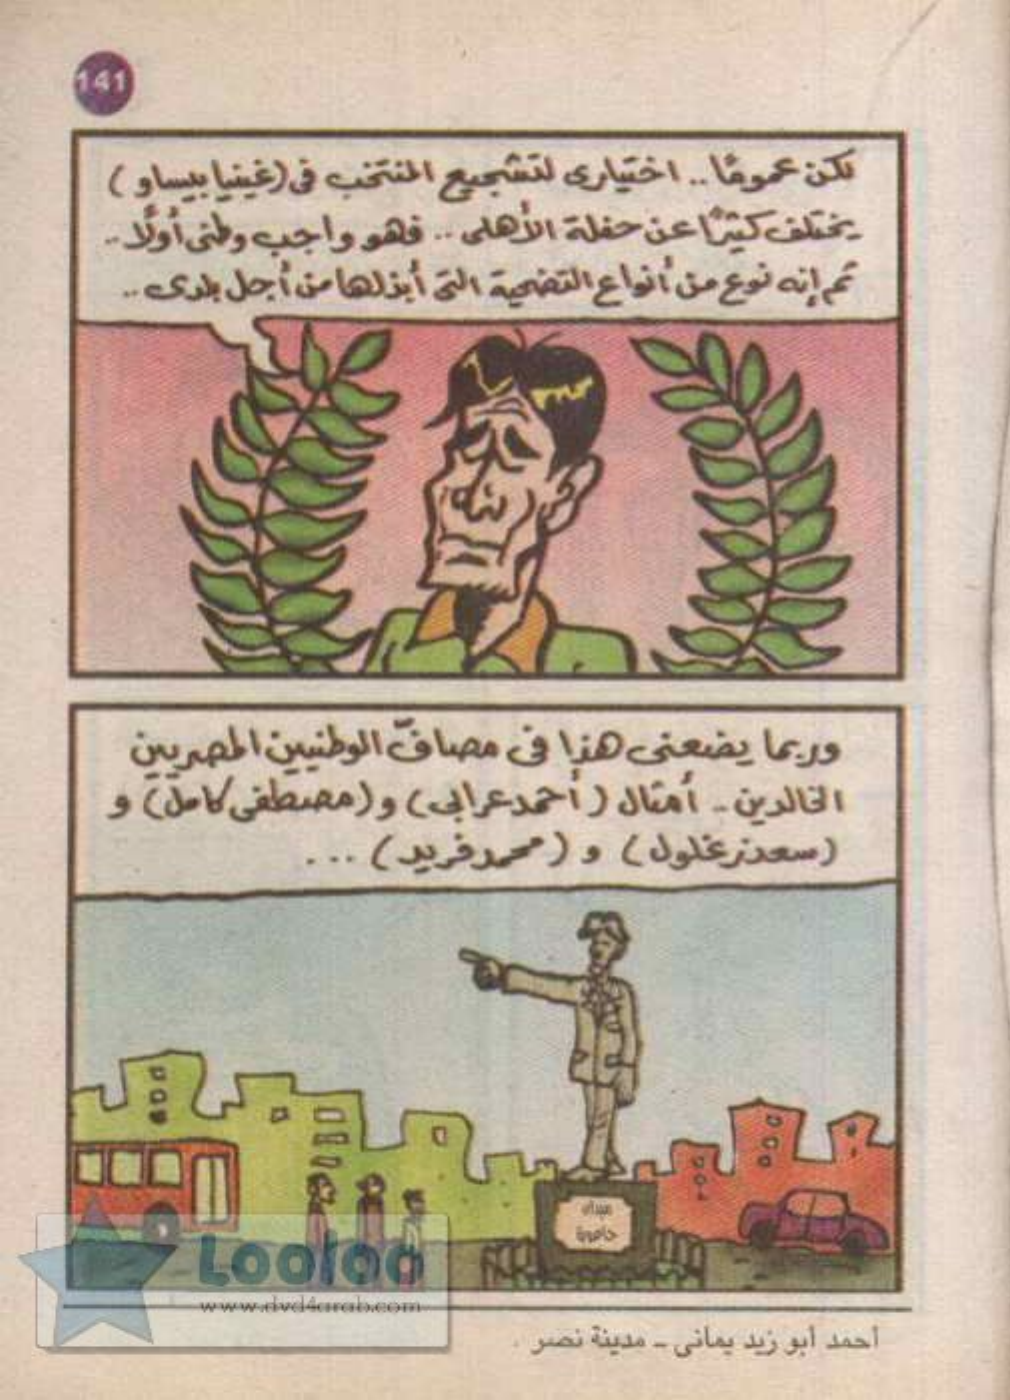 141
لكن عمومًا.. اختيارى لتشجيع المنتخب فى (غينيا بيساو)
يختلف كثيرًا عن حفلة الأهلى.. فهو واجب وطنى أولًا..
ثم إنه نوع من أنواع التضحية التى أبذلها من أجل بلدى..
وربما يضعنى هذا فى مصافّ الوطنيين المصريين
الخالدين.. أمثال (أحمد عرابى) و (مصطفى كامل) و
(سعد زغلول) و (محمد فريد) ...
ميدان
Looloo
www.dvd4arab.com
أحمد أبو زيد يمانى - مدينة نصر .